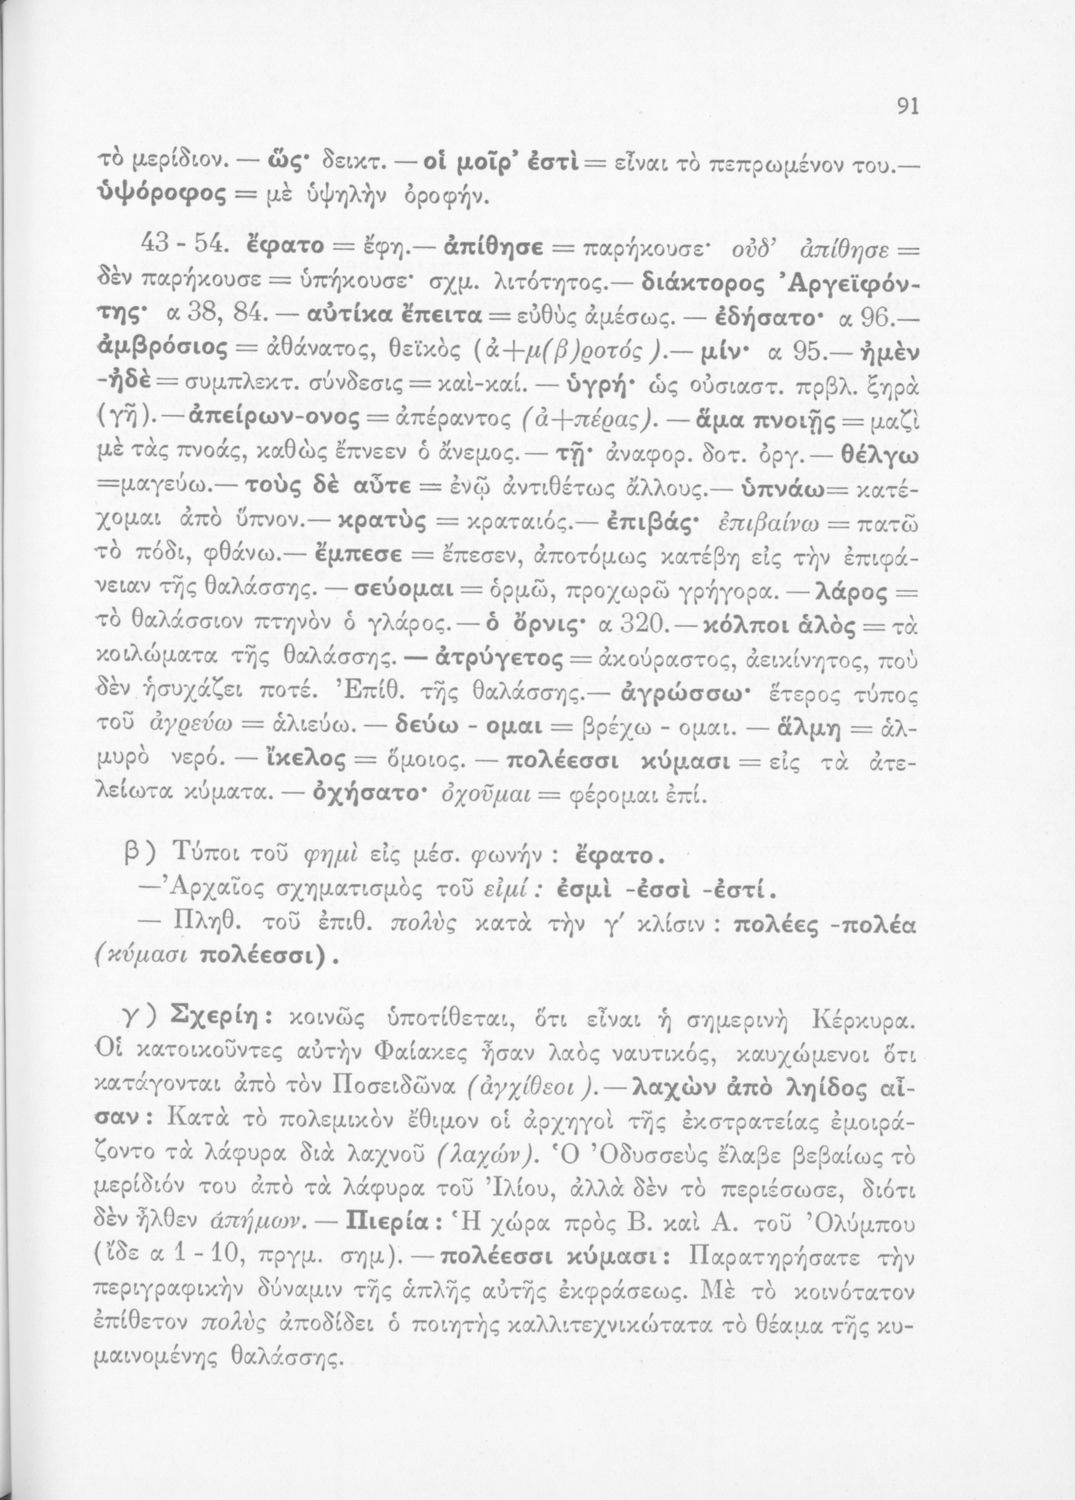 91
τὸ μερίδιον. — ὥς· δεικτ. — οἱ μοῖρ' ἐστὶ = εἶναι τὸ πεπρωμένον του.—
ὑψόροφος = μὲ ὑψηλὴν ὀροφήν.
43 - 54. ἔφατο = ἔφη.— ἀπίθησε = παρήκουσε· οὐδ' ἀπίθησε =
δὲν παρήκουσε = ὑπήκουσε· σχμ. λιτότητος.— διάκτορος Ἀργεϊφόν-
της· α 38, 84. — αὐτίκα ἔπειτα = εὐθὺς ἀμέσως. — ἐδήσατο· α 96.—
ἀμβρόσιος = ἀθάνατος, θεϊκὸς (ἀ+μ(β)ροτός ).— μίν· α 95.— ἠμὲν
-ἠδὲ = συμπλεκτ. σύνδεσις = καὶ-καί. — ὑγρή· ὡς οὐσιαστ. πρβλ. ξηρὰ
(γῆ). — ἀπείρων-ονος = ἀπέραντος (ἀ+πέρας). — ἅμα πνοιῇς = μαζὶ
μὲ τὰς πνοάς, καθὼς ἔπνεεν ὁ ἄνεμος.— τῇ· ἀναφορ. δοτ. ὀργ.— θέλγω
=μαγεύω.— τοὺς δὲ αὖτε = ἐνῷ ἀντιθέτως ἄλλους.— ὑπνάω= κατέ-
χομαι ἀπὸ ὕπνον.— κρατὺς = κραταιός.— ἐπιβάς· ἐπιβαίνω = πατῶ
τὸ πόδι, φθάνω.— ἔμπεσε = ἔπεσεν, ἀποτόμως κατέβη εἰς τὴν ἐπιφά-
νειαν τῆς θαλάσσης. — σεύομαι = ὁρμῶ, προχωρῶ γρήγορα. — λάρος =
τὸ θαλάσσιον πτηνὸν ὁ γλάρος. — ὁ ὄρνις· α 320. — κόλποι ἁλὸς = τὰ
κοιλώματα τῆς θαλάσσης. — ἀτρύγετος = ἀκούραστος, ἀεικίνητος, ποὺ
δὲν ἡσυχάζει ποτέ. Ἐπίθ. τῆς θαλάσσης.— ἀγρώσσω· ἕτερος τύπος
τοῦ ἀγρεύω = ἁλιεύω. — δεύω - ομαι = βρέχω - ομαι. — ἅλμη = ἁλ-
μυρὸ νερό. — ἴκελος = ὅμοιος. — πολέεσσι κύμασι = εἰς τὰ ἀτε-
λείωτα κύματα. — ὀχήσατο· ὀχοῦμαι = φέρομαι ἐπί.
β) Τύποι τοῦ φημὶ εἰς μέσ. φωνήν : ἔφατο.
—Ἀρχαῖος σχηματισμὸς τοῦ εἰμί : ἐσμὶ -ἐσσὶ -ἐστί.
— Πληθ. τοῦ ἐπιθ. πολὺς κατὰ τὴν γ' κλίσιν : πολέες -πολέα
(κύμασι πολέεσσι).
γ) Σχερίη : κοινῶς ὑποτίθεται, ὅτι εἶναι ἡ σημερινὴ Κέρκυρα.
Οἱ κατοικοῦντες αὐτὴν Φαίακες ἦσαν λαὸς ναυτικός, καυχώμενοι ὅτι
κατάγονται ἀπὸ τὸν Ποσειδῶνα (ἀγχίθεοι ). — λαχὼν ἀπὸ ληίδος αἶ-
σαν : Κατὰ τὸ πολεμικὸν ἔθιμον οἱ ἀρχηγοὶ τῆς ἐκστρατείας ἐμοιρά-
ζοντο τὰ λάφυρα διὰ λαχνοῦ (λαχών). Ὁ Ὀδυσσεὺς ἔλαβε βεβαίως τὸ
μερίδιόν του ἀπὸ τὰ λάφυρα τοῦ Ἰλίου, ἀλλὰ δὲν τὸ περιέσωσε, διότι
δὲν ἦλθεν ἀπήμων. — Πιερία : Ἡ χώρα πρὸς Β. καὶ Α. τοῦ Ὀλύμπου
(ἴδε α 1 - 10, πργμ. σημ.). — πολέεσσι κύμασι : Παρατηρήσατε τὴν
περιγραφικὴν δύναμιν τῆς ἁπλῆς αὐτῆς ἐκφράσεως. Μὲ τὸ κοινότατον
ἐπίθετον πολὺς ἀποδίδει ὁ ποιητὴς καλλιτεχνικώτατα τὸ θέαμα τῆς κυ-
μαινομένης θαλάσσης.